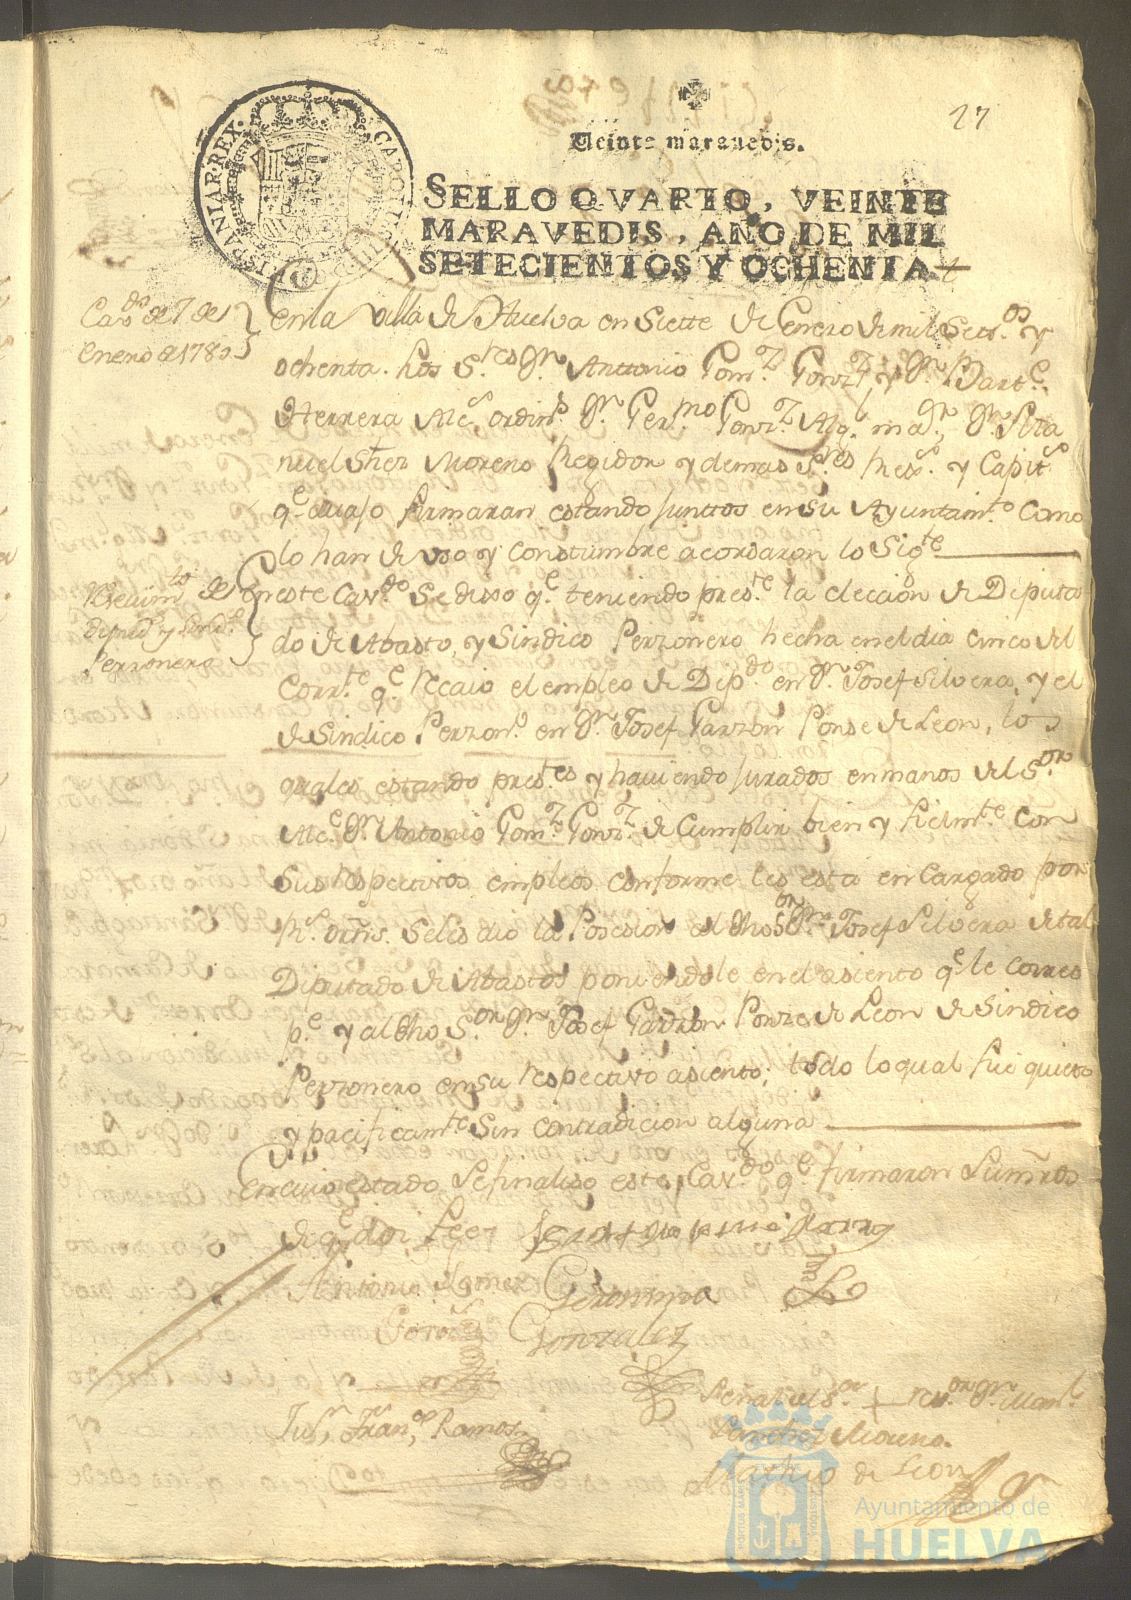 27
Veinte maravedis.
SELLO QVARTO, VEINTE
MARAVEDIS, AÑO DE MIL
SETECIENTOS Y OCHENTA
HISPANIAR·REX· CAROLUS
Cavdo. de 7 de
Enero de 1780
en la Villa de Huelva en Siette de Enero de mil Settos. y
ochenta. los Sres. Dn. Anttonio Gomz. Gonzz. y Dn. Barte.
Herrera Alcs. ordins. Dn. Germo. Gonzz. Algl. mar. Dn. Ma
nuel Shez Moreno Regidor y demas Sres. Rexs. y Capits.
qe. avajo firmaran estando junttos en su Ayuntamto. como
lo han de uso y constumbre acordaron lo Sigte.
Recivimto. de
diputdo. y sindco.
Perzonero
En este Cavdo. Se dixo qe. teniendo preste. la eleccion de Diputa
do de Abasto, y Sindico Perzonero hecha en el dia cinco del
Corrte. qe. recaio el empleo de Dipdo. en Dn. Josef Silvera, y el
de Sindico Perzono. en Dn. Josef Garzon Ponse de Leon, los
quales estando prestes. y haviendo jurados en manos del Sor.
Alce. Dn. Antonio Gomz. Gonzz. de Cumplir bien y fielmte. con
Sus respectivos empleos conforme les está encargado por
Rs. orns. Se les dio la Posesion al dho Sor. Dn. Josef Silvera de tal
Diputado de Abastos poniendole en el asiento qe. le corres
pe. y al dho Sor. Dn. Josef Garzon Ponze de Leon de Sindico
Perzonero en su respectivo asiento; todo lo qual fue quieta
y pacificamte. Sin contradicion alguna
En cuio estado Se finaliso este Cavdo. qe. firmaron Sus mrds
de qe. doi fee
Antonio Gomez
Gonz.
Geronimo
Gonzalez
Juan Franco. Ramos
Señal del Sor. + rexor. Dn. Manl.
Sanchez Moreno.
de Leon
Ayuntamiento de
HUELVA